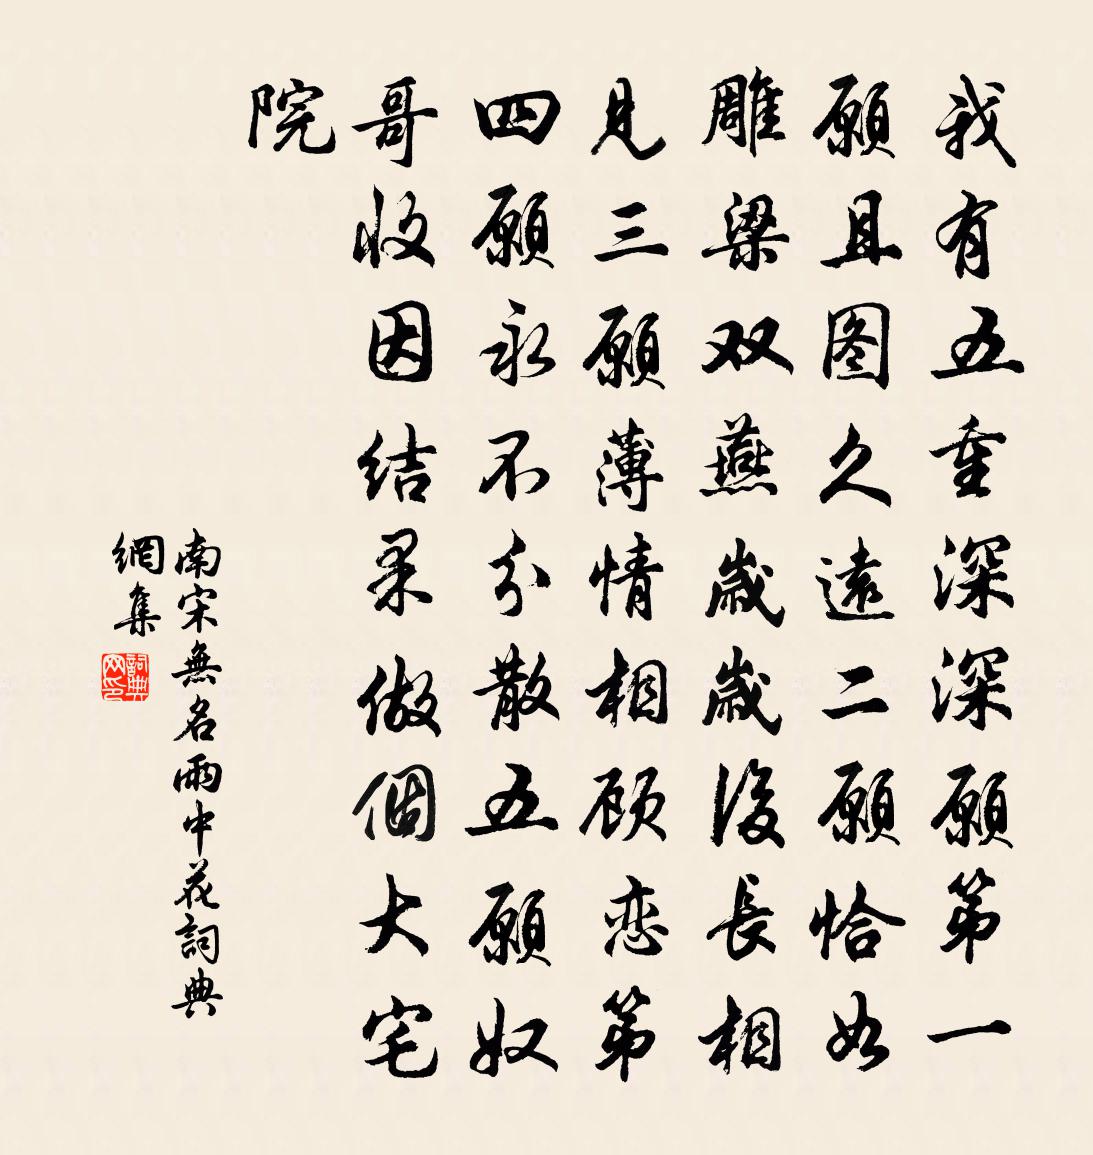 我有五重深深願第一
願且图久遠二願恰如
雕梁双燕歲歲後長相
見三願薄情相顾恋第
四願永不分散五願奴
哥收因结果做個大宅
院
南宋無名雨中花詞典
網集
詞典
网印